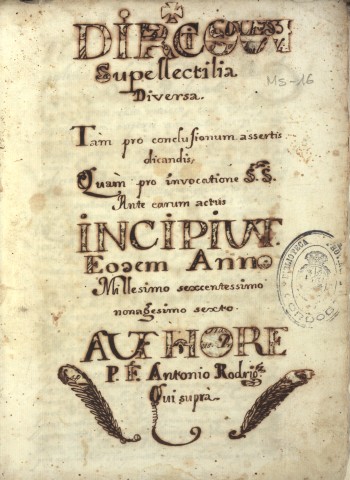 Supellectilia
Diversa.
Ms-16
Tàm pro conclusionum assertis
dicandis,
Quàm pro invocatione S.S.
Ante earum actus
INCIPIUT.
Eodem Anno
Millesimo sexcentessimo
nonagesimo sexto.
AUTHORE
P. F. Antonio Rodrigz.
Qui suprà.
BIBLIOTECA